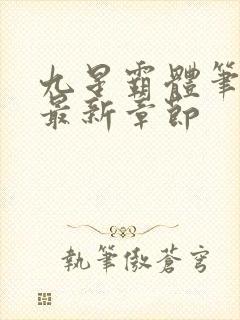 九星霸體筆
最新章節
執筆傲蒼穹